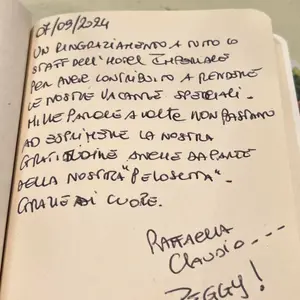 07/09/2024
UN RINGRAZIAMENTO A TUTTO LO
STAFF DELL'HOTEL IMPERIALE
PER AVER CONTRIBUITO A RENDERE
LE NOSTRE VACANZE SPECIALI.
MILLE PAROLE A VOLTE NON BASTANO
AD ESPRIMERE LA NOSTRA
GRATITUDINE ANCHE DA PARTE
DELLA NOSTRA "PELOSETTA".
GRAZIE DI CUORE.
RAFFAELLA
CLAUDIO ---
PEGGY!